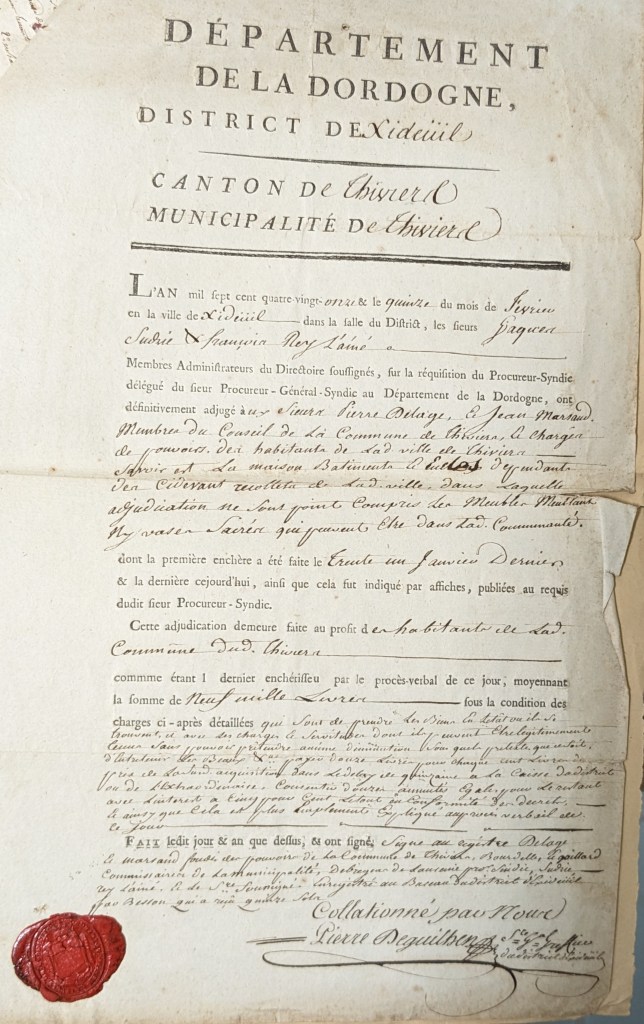 DÉPARTEMENT
DE LA DORDOGNE,
DISTRICT DE Xideüil
CANTON De Thivierd
MUNICIPALITÉ De Thivierd
L'AN mil sept cent quatre-vingt-onze & le quinze du mois de fevrier
en la ville de Xideüil dans la salle du District, les sieurs Jaques
Sudrie & françois Rey L'ainé
Membres Administrateurs du Directoire soussignés, sur la réquisition du Procureur-Syndic
délégué du sieur Procureur-Général-Syndic au Département de la Dordogne, ont
définitivement adjugé aux Sieurs Pierre Delage, & Jean Marsaud.
Membres du Conseil de La Commune de Thiviers, & chargés
de pouvoirs des habitants de Lad ville de Thiviers
Savoir est La maison Batiments & Enclos dépendants
des Cidevant recollets de Lad. ville, dans Laquelle
adjudication ne sont point Compris les Meubles Meublants
Ny vases Sacrés qui peuvent Etre dans Lad. Communauté.
dont la première enchère a été faite le trente un Janvier Dernier
& la dernière cejourd'hui, ainsi que cela fut indiqué par affiches, publiées au requis
dudit sieur Procureur-Syndic.
Cette adjudication demeure faite au profit des habitants de Lad.
Commune dud. Thiviers
commme étant l dernier enchérisseu par le procès-verbal de ce jour, moyennant
la somme de Neuf mille Livres sous la condition des
charges ci-après détaillées qui Sont de prendre Les Biens En Letat ou il se
trouvent, & avec ses charges & Servitudes dont il peuvent Etre legitimement
tenus Sans pouvoir prétendre aucune diminution Sous quel pretexte que ce soit,
d'Entretenir Les Beaux payer douze Livres pour chaque cent Livres du
prix de La Susd. acquisition dans Le delay de quinzaine a La Caisse du district
ou de LExtraordinaire Consentir douze annuités Egales pour Le restant
avec Linterest a Cinq pour Cent Le tout en Conformité des decrets,
& ainsy que Cela est plus amplement Expliqué au procès verbeil de
ce Jour
FAIT ledit jour & an que dessus, & ont signé, Signé au registre Delage
& marsaud fondés de pouvoir de La Commune de Thiviers, Bourdelle, & gaillard
Commissaires de La municipalité, Debregeas de Lauranie Sudrie,
rey Lainé, & de Soussigné Enregistré au Bureau du district
par Besson qui a reçu quinze Sols
Collationné par Nous
Pierre Deguilhen
du district dExideüil